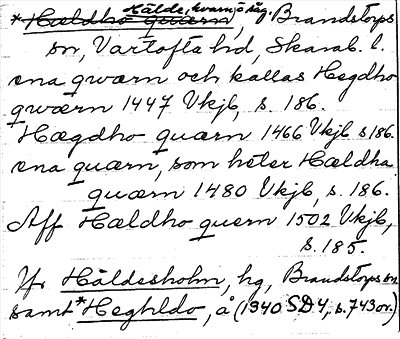 *Hældho quærn, Hälde, kvarn i häg. Brandstorps
sn, Vartofta hd, Skarab. l.
ena qwærn och kallas Hegdho
qwærn 1447 Vkjb, s. 186.
Hægdho quærn 1466 Vkjb s186.
ena quærn, som heter Hældha
quærn 1480 Vkjb, s. 186.
Aff Hældho quern 1502 Vkjb,
s. 185.
Jfr Håldesholm, hg, Brandstorps sn
samt *Heghldo, å (1340 SD4, s. 743 or.)